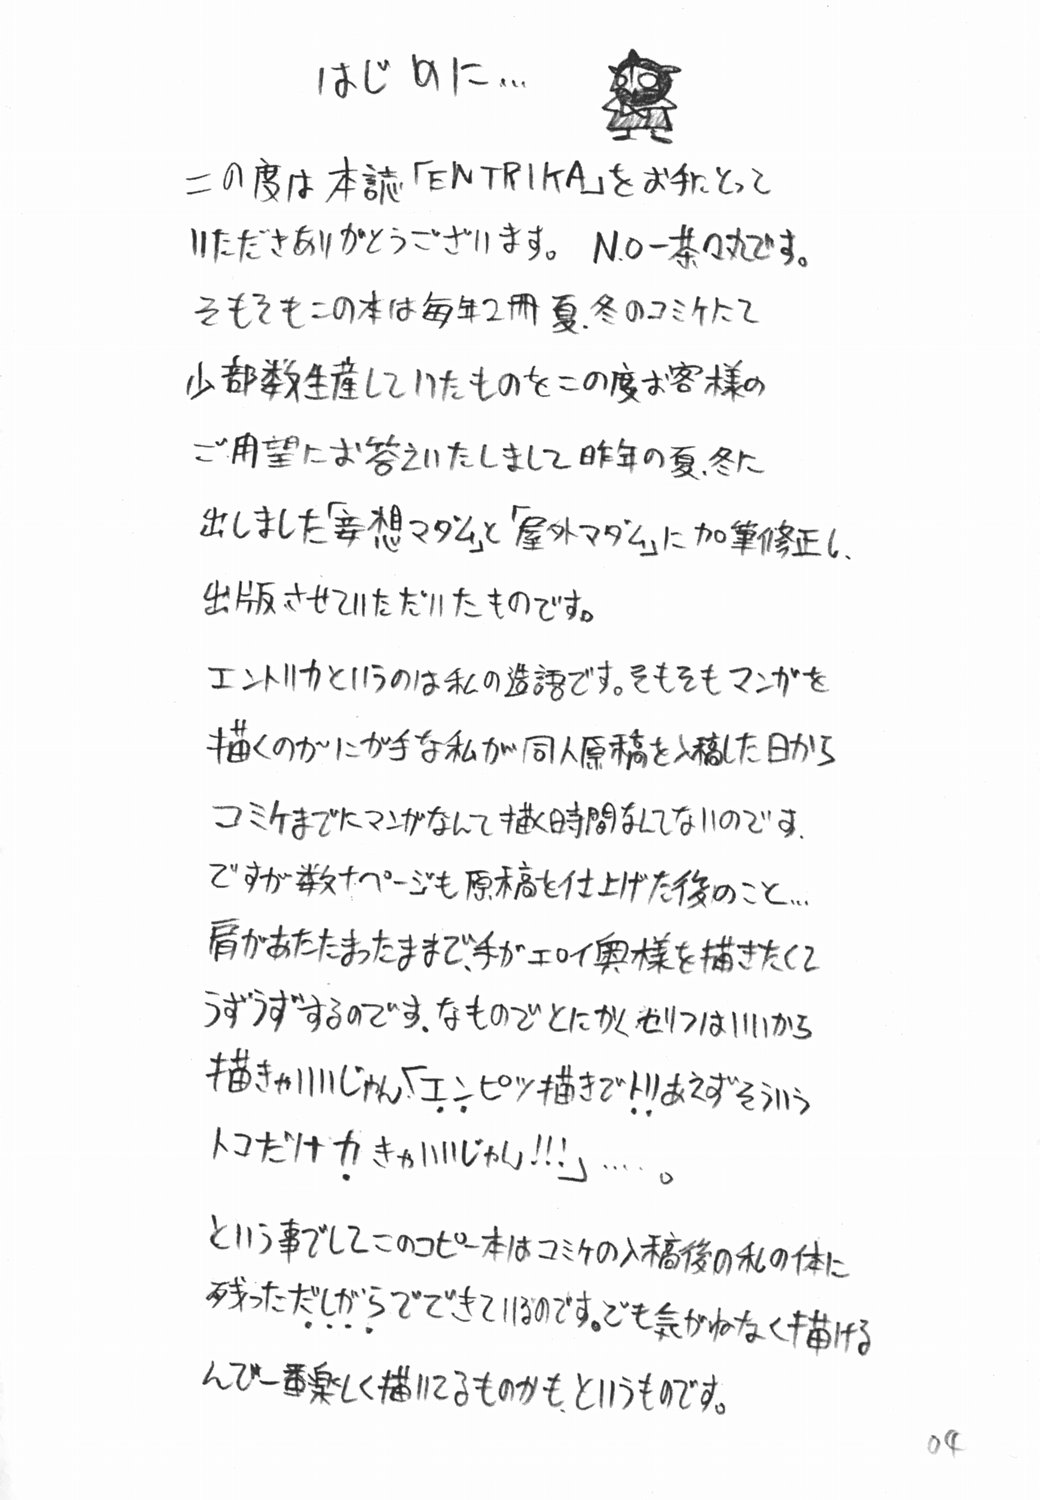 はじめに…
この度は本誌「ENTRIKA」をお手にとって
いただきありがとうございます。 N.O-茶々丸です。
そもそもこの本は毎年2冊 夏、冬のコミケにて
少部数生産していたものをこの度お客様の
ご用望にお答えいたしまして昨年の夏、冬に
出しました「妄想マダム」と「屋外マダム」に加筆修正し、
出版させていただいたものです。
エントリカというのは私の造語です。そもそもマンガを
描くのがにが手な私が同人原稿を入稿した日から
コミケまでにマンガなんて描く時間なんてないのです、
ですが数十ページも原稿を仕上げた後のこと…
肩があたたまったままで、手がエロイ奥様を描きたくて
うずうずするのです、なものでとにかくセリフはいいから
描きゃいいじゃん、「エンピツ描きでトリあえずそういう
トコだけカきゃいいじゃん!!!」……。
という事でしてこのコピー本はコミケの入稿後の私の体に
残っただしがらでできているのです。でも気がねなく描ける
んで一番楽しく描いてるものかも、というものです。
04